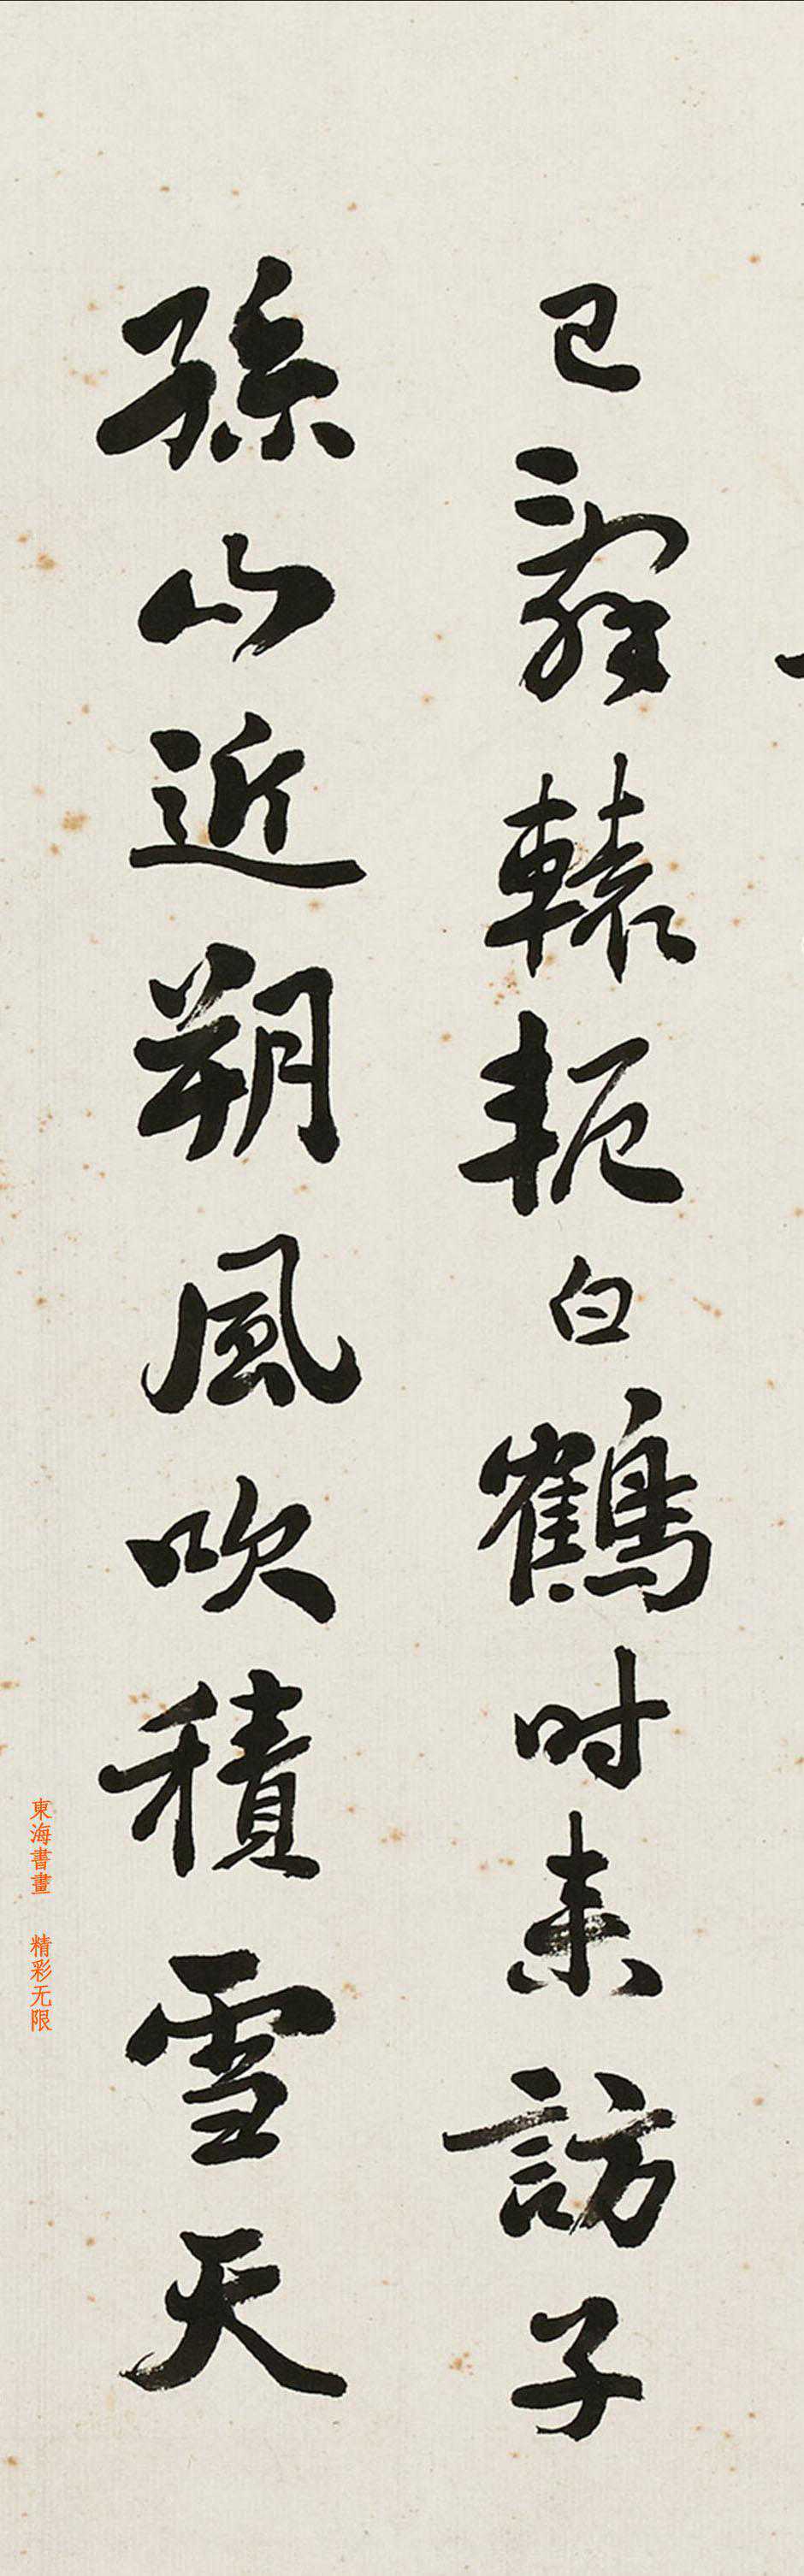 已辭轅軛白鶴时来訪子
孫山近朔風吹積雪天
東海書畫 精彩无限